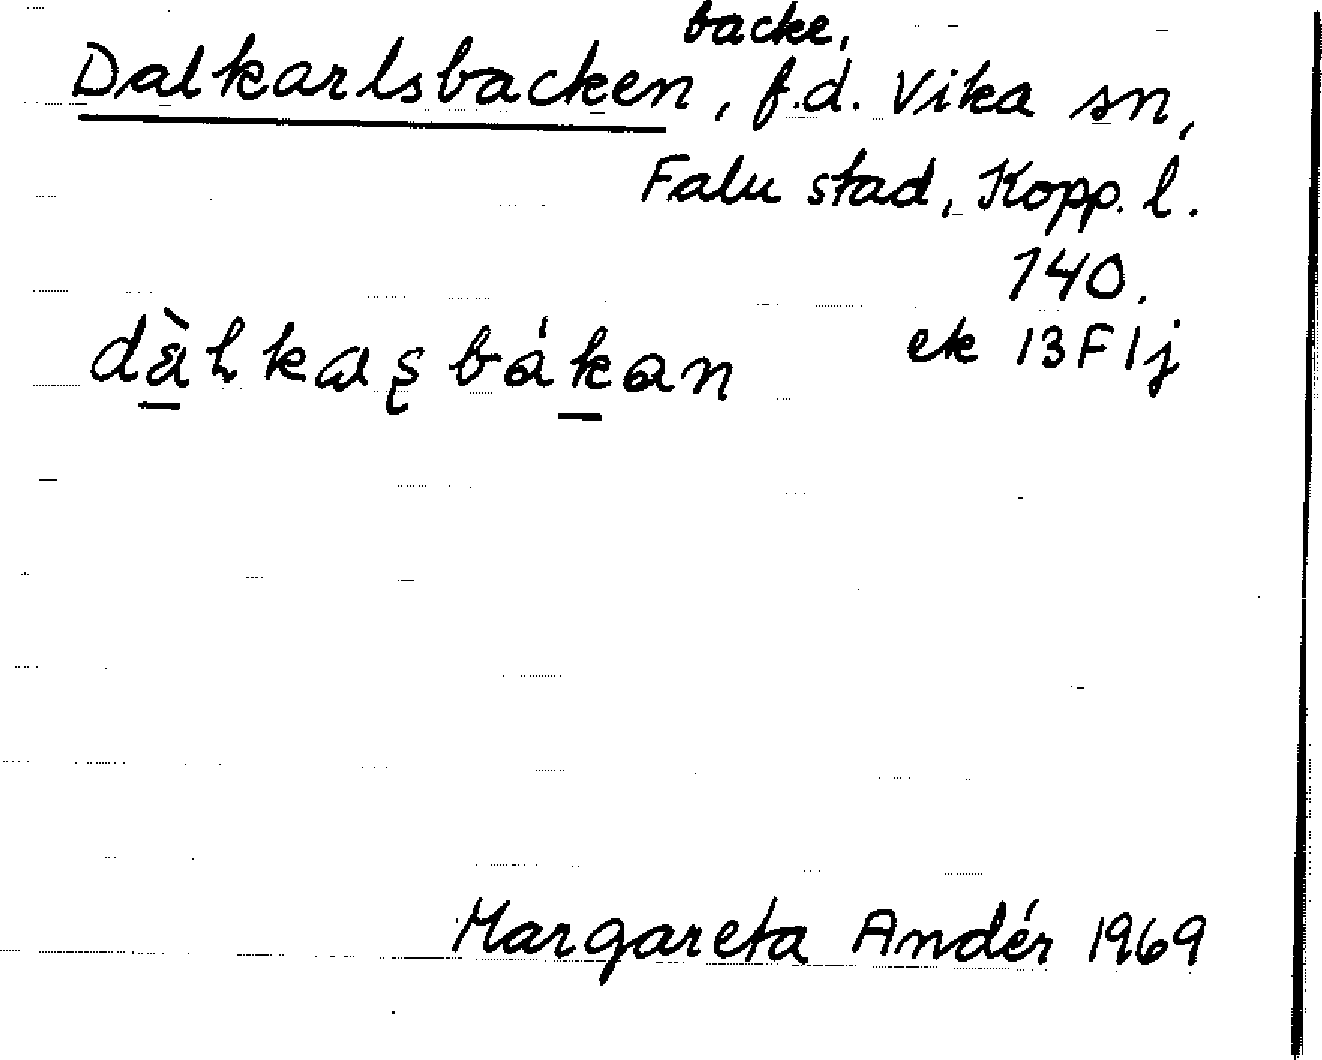 backe,
Dalkarlsbacken, f.d. Vika sn,
Falu stad, Kopp. l.
140.
dàlkaʂbákan ek 13F1j
Margareta Andér 1969